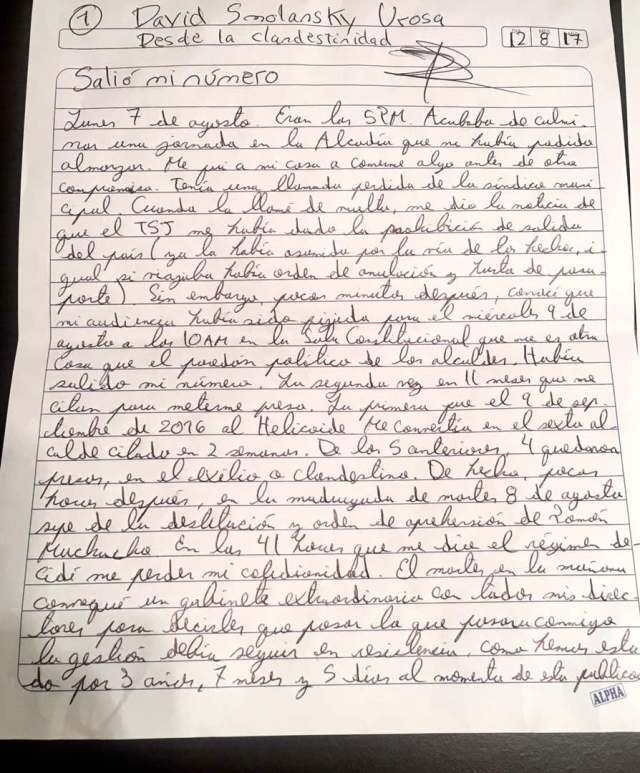 1 David Smolansky Urosa
Desde la clandestinidad 12 8 17
Salió mi número
Lunes 7 de agosto. Eran las 5PM. Acababa de culmi-
nar una jornada en la Alcaldía que no había podido
almorzar. Me fui a mi casa a comerme algo antes de otro
compromiso. Tenía una llamada perdida de la síndica muni
cipal. Cuando la llamé de vuelta, me dio la noticia de
que el TSJ me había dado la prohibición de salida
del país (ya la había asumido por la vía de los hechos, i
gual si viajaba había orden de anulación y hurto de pasa-
porte). Sin embargo, pocos minutos después, conocí que
mi audiencia había sido fijada para el miércoles 9 de
agosto a las 10AM en la Sala Constitucional que no es otra
cosa que el paredón político de los alcaldes. Había
salido mi número. La segunda vez en 11 meses que me
citan para meterme preso. La primera fue el 9 de sep-
tiembre de 2016 al Helicoide. Me convertía en el sexto al
calde citado en 2 semanas. De los 5 anteriores, 4 quedaron
presos, en el exilio, o clandestino. De hecho, pocas
horas después, en la madrugada de martes 8 de agosto
supe de la destitución y orden de aprehensión de Ramón
Muchacho. En las 41 horas que me dice el régimen de-
cidí me perder mi cotidianidad. El martes, en la mañana
convoqué un gabinete extraordinario con todos mis direc-
tores para decirles que pasara lo que pasara conmigo
la gestión debía seguir en resistencia, como hemos esta
do por 3 años, 7 meses y 5 días al momento de esta publica
ALPHA